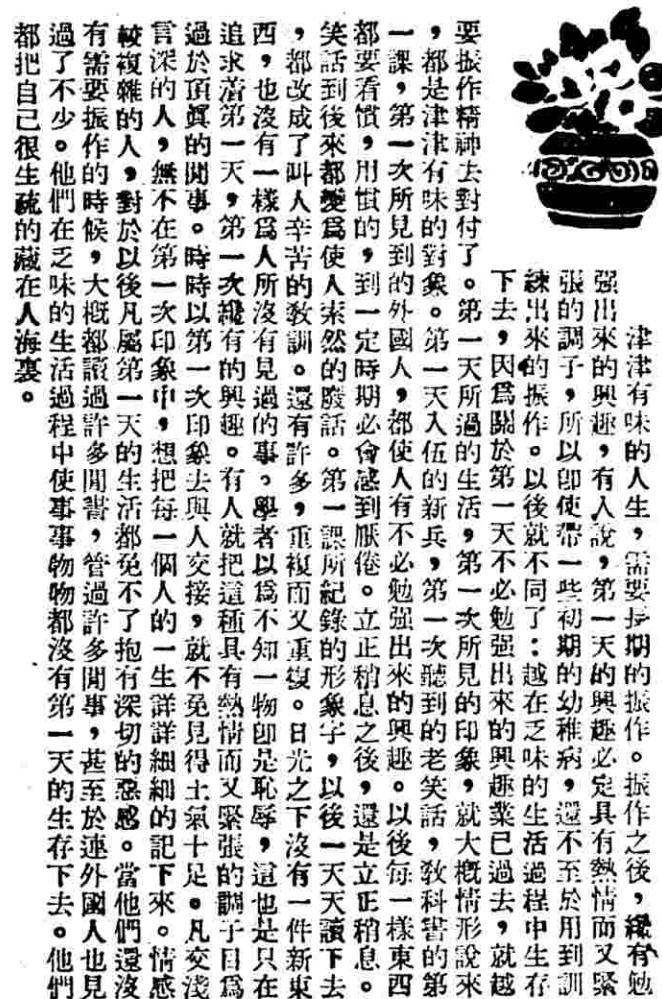 津津有味的人生，需要長期的振作。振作之後，纔有勉
强出來的興趣，有人說，第一天的興趣必定具有熱情而又緊
張的調子，所以卽使帶一些初期的幼稚病，還不至於用到訓
練出來的振作。以後就不同了：越在乏味的生活過程中生存
下去，因爲關於第一天不必勉强出來的興趣業已過去，就越
要振作精神去對付了。第一天所過的生活，第一次所見的印象，就大概情形說來
，都是津津有味的對象。第一天入伍的新兵，第一次聽到的老笑話，敎科書的第
一課，第一次所見到的外國人，都使人有不必勉强出來的興趣。以後每一樣東西
都要看慣，用慣的，到一定時期必會感到厭倦。立正稍息之後，還是立正稍息。
笑話到後來都變爲使人索然的廢話。第一課所紀錄的形象字，以後一天天讀下去
，都改成了叫人辛苦的敎訓。還有許多，重複而又重復。日光之下沒有一件新東
西，也沒有一樣爲人所沒有見過的事。學者以爲不知一物卽是恥辱，這也是只在
追求着第一天，第一次纔有的興趣。有人就把這種具有熱情而又緊張的調子目爲
過於頂眞的閒事。時時以第一次印象去與人交接，就不免見得土氣十足。凡交淺
言深的人，無不在第一次印象中，想把每一個人的一生詳詳細細的記下來。情感
較複雜的人，對於以後凡屬第一天的生活都免不了抱有深切的惡感。當他們還沒
有需要振作的時候，大概都讀過許多閒書，管過許多閒事，甚至於連外國人也見
過了不少。他們在乏味的生活過程中使事事物物都沒有第一天的生存下去。他們
都把自己很生疏的藏在人海裏。